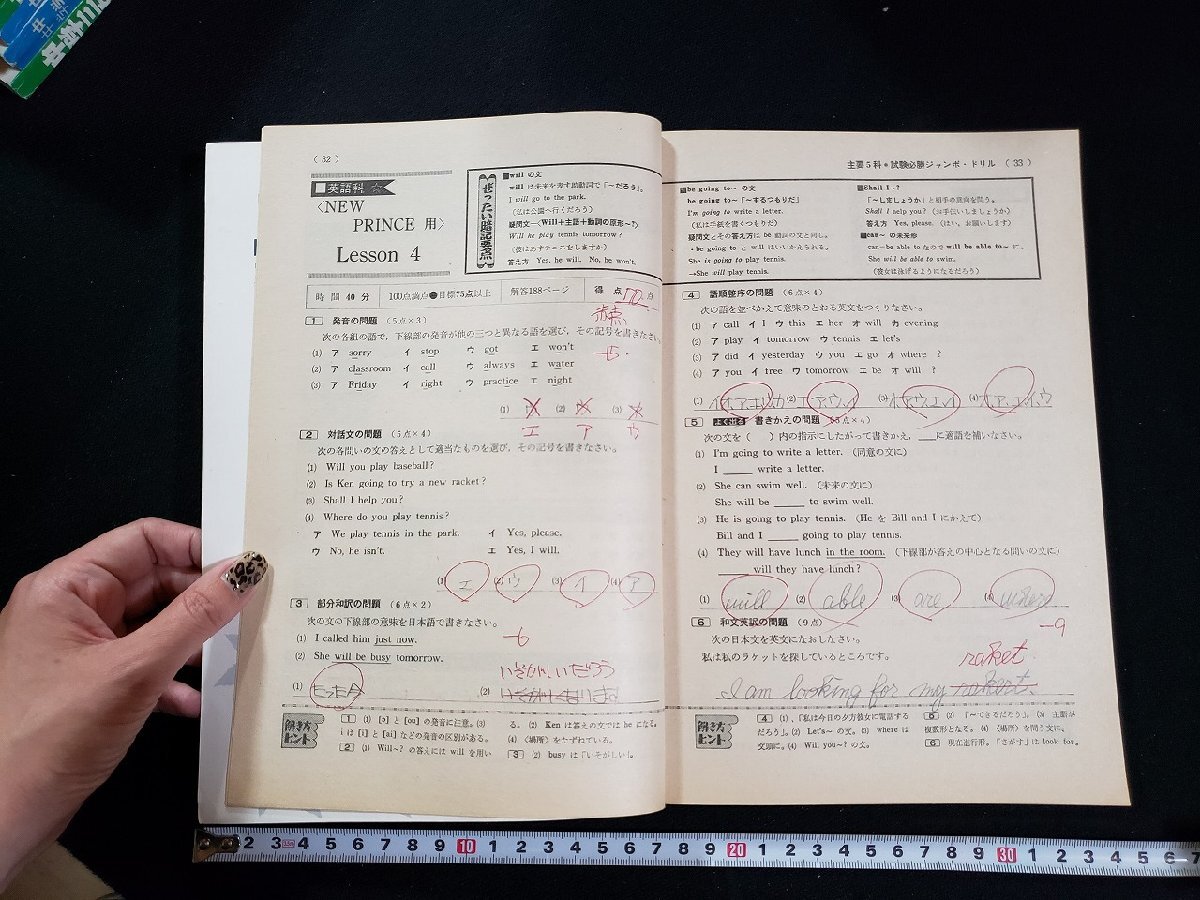 (32)
英語科
〈NEW
PRINCE 用〉
Lesson 4
ぜったい暗記要点
■will の文
will は未来を表す助動詞で「～だろう」。
I will go to the park.
(私は公園へ行くだろう)
疑問文―〈Will+主語+動詞の原形～?〉
Will he play tennis tomorrow?
(彼はあすテニスをしますか)
答え方 Yes, he will. No, he won't.
時間 40 分 100点満点●目標75点以上 解答188ページ 得点 点
1 発音の問題 (5点×3)
次の各組の語で,下線部の発音が他の三つと異なる語を選び,その記号を書きなさい。
(1) ア sorry イ stop ウ got エ won't
(2) ア classroom イ call ウ always エ water
(3) ア Friday イ right ウ practice エ night
(1) (2) (3)
エ ア ウ
2 対話文の問題 (5点×4)
次の各問いの文の答えとして適当なものを選び,その記号を書きなさい。
(1) Will you play baseball?
(2) Is Ken going to try a new racket?
(3) Shall I help you?
(4) Where do you play tennis?
ア We play tennis in the park. イ Yes, please.
ウ No, he isn't. エ Yes, I will.
(1) エ (2) ウ (3) イ (4) ア
3 部分和訳の問題 (6点×2)
次の文の下線部の意味を日本語で書きなさい。
(1) I called him just now. -6
(2) She will be busy tomorrow.
いそがしいだろう
(1) たった今 (2)
解き方ヒント
1 (1) [ɔ] と [ou] の発音に注意。(3)
は [i] と [ai] などの発音の区別がある。
2 (1) Will～? の答えには will を用い
る。(2) Ken は答えの文では he になる。
(4) 〈場所〉をたずねている。
3 (2) busy は「いそがしい」。
主要5科●試験必勝ジャンボ・ドリル (33)
■be going to～ の文
be going to～「～するつもりだ」
I'm going to write a letter.
(私は手紙を書くつもりだ)
疑問文とその答え方は be 動詞の文と同じ。
・be going to と will はいいかえられる。
She is going to play tennis.
→She will play tennis.
■Shall I～?
「～しましょうか」と相手の意向を問う。
Shall I help you? (お手伝いしましょうか)
答え方 Yes, please. (はい, お願いします)
■can～ の未来形
can=be able to なので will be able to～に。
She will be able to swim.
(彼女は泳げるようになるだろう)
4 語順整序の問題 (6点×4)
次の語を並べかえて意味のとおる英文をつくりなさい。
(1) ア call イ I ウ this エ her オ will カ evening
(2) ア play イ tomorrow ウ tennis エ let's
(3) ア did イ yesterday ウ you エ go オ where ?
(4) ア you イ free ウ tomorrow エ be オ will ?
(1) イ,オ,ア,エ,ウ,カ (2) エ,ア,ウ,イ (3) オ,ア,ウ,エ,イ (4) オ,ア,エ,イ,ウ
5 よく出る 書きかえの問題 (5点×4)
次の文を( )内の指示にしたがって書きかえ, ___に適語を補いなさい。
(1) I'm going to write a letter. (同意の文に)
I ____ write a letter.
(2) She can swim well. (未来の文に)
She will be ____ to swim well.
(3) He is going to play tennis. (He を Bill and I にかえて)
Bill and I ____ going to play tennis.
(4) They will have lunch in the room. (下線部が答えの中心となる問いの文に)
____ will they have lunch?
(1) will (2) able (3) are (4) where
6 和文英訳の問題 (9点)
-9
次の日本文を英文になおしなさい。
私は私のラケットを探しているところです。
raket
I am looking for my
解き方ヒント
4 (1) 「私は今日の夕方彼女に電話する
だろう」。(2) Let's～ の文。(3) where は
文頭に。(4) Will you～? の文。
5 (2) 「～できるだろう」。(3) 主語が
複数形となる。(4) 〈場所〉を問う文に。
6 現在進行形。「さがす」は look for。